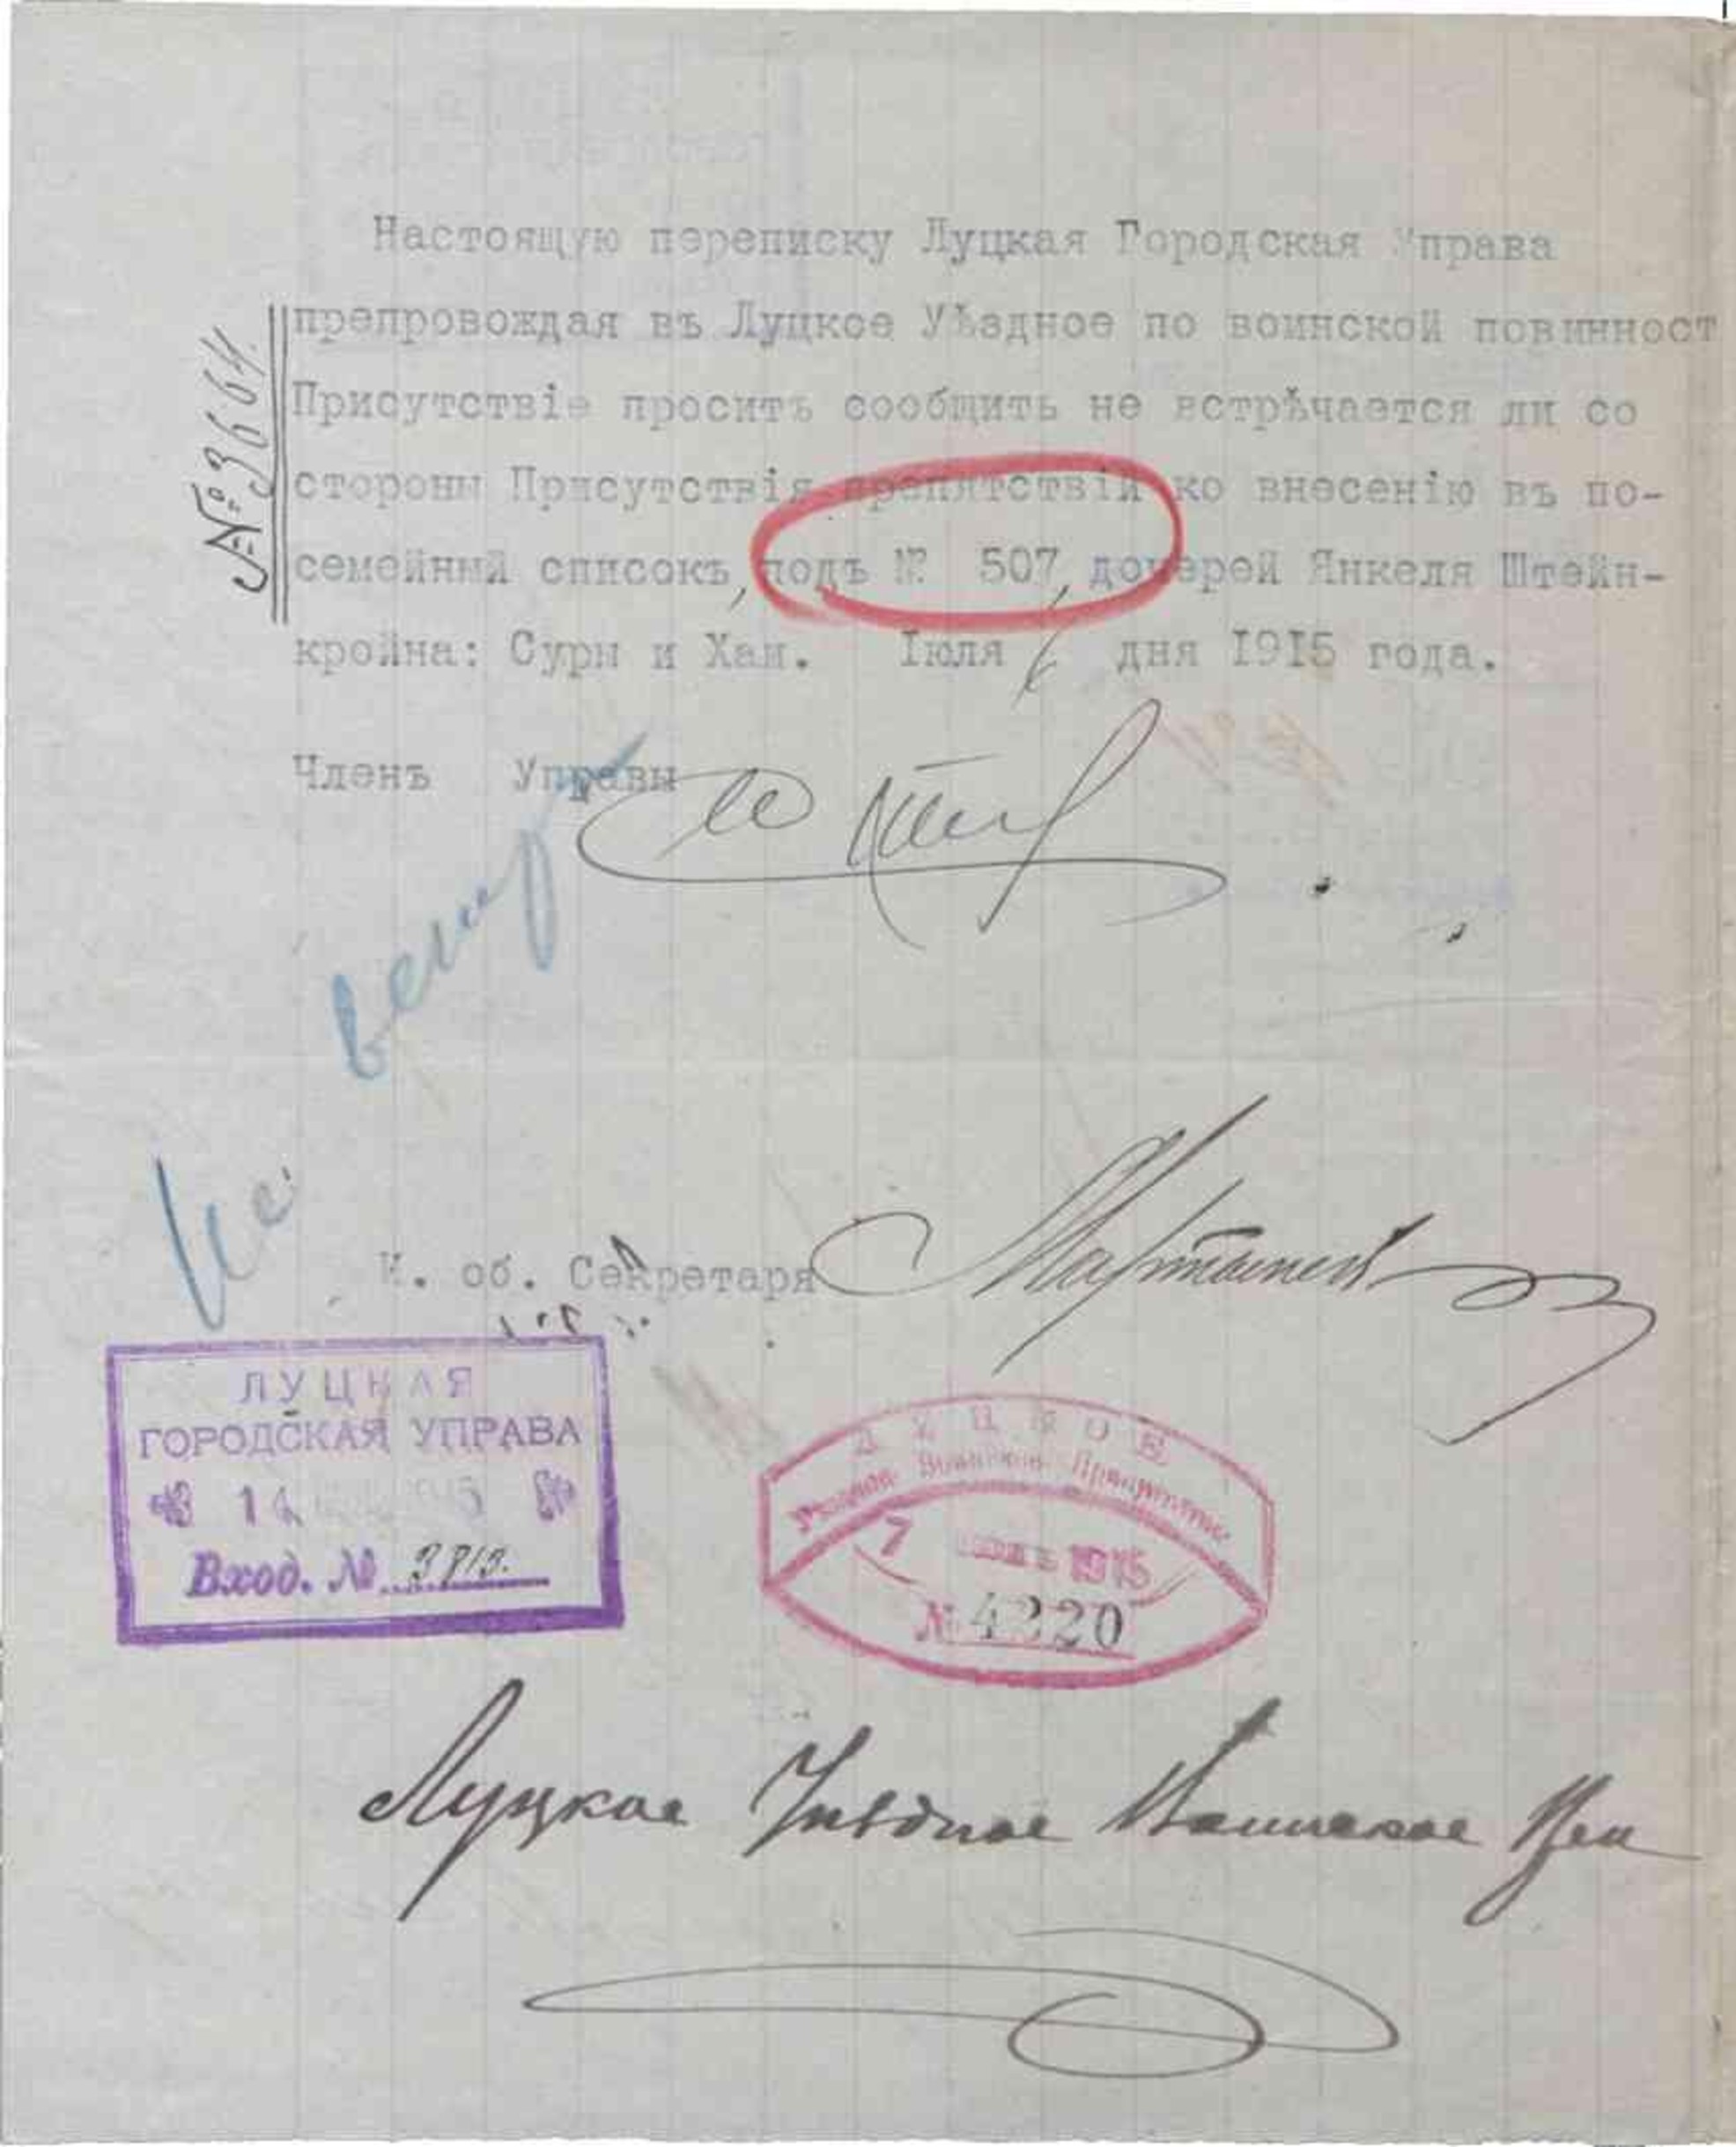 Настоящую переписку Луцкая Городская Управа
препровождая въ Луцкое Уѣздное по воинской повинност
Присутствіе проситъ сообщить не встрѣчается ли со
стороны Присутствія препятствій ко внесенію въ по-
семейный списокъ, подъ № 507, дочерей Янкеля Штейн-
кройна: Суры и Хаи. Іюля 6 дня 1915 года.
№ 3664.
Членъ Управы
Не
И. об. Секретаря
ЛУЦКАЯ
ГОРОДСКАЯ УПРАВА
14
Вход. №
ЛУЦКОЕ
Уѣздное Воинское Присутствіе
7 1915
№ 4220
Луцкое Уѣздное Воинское